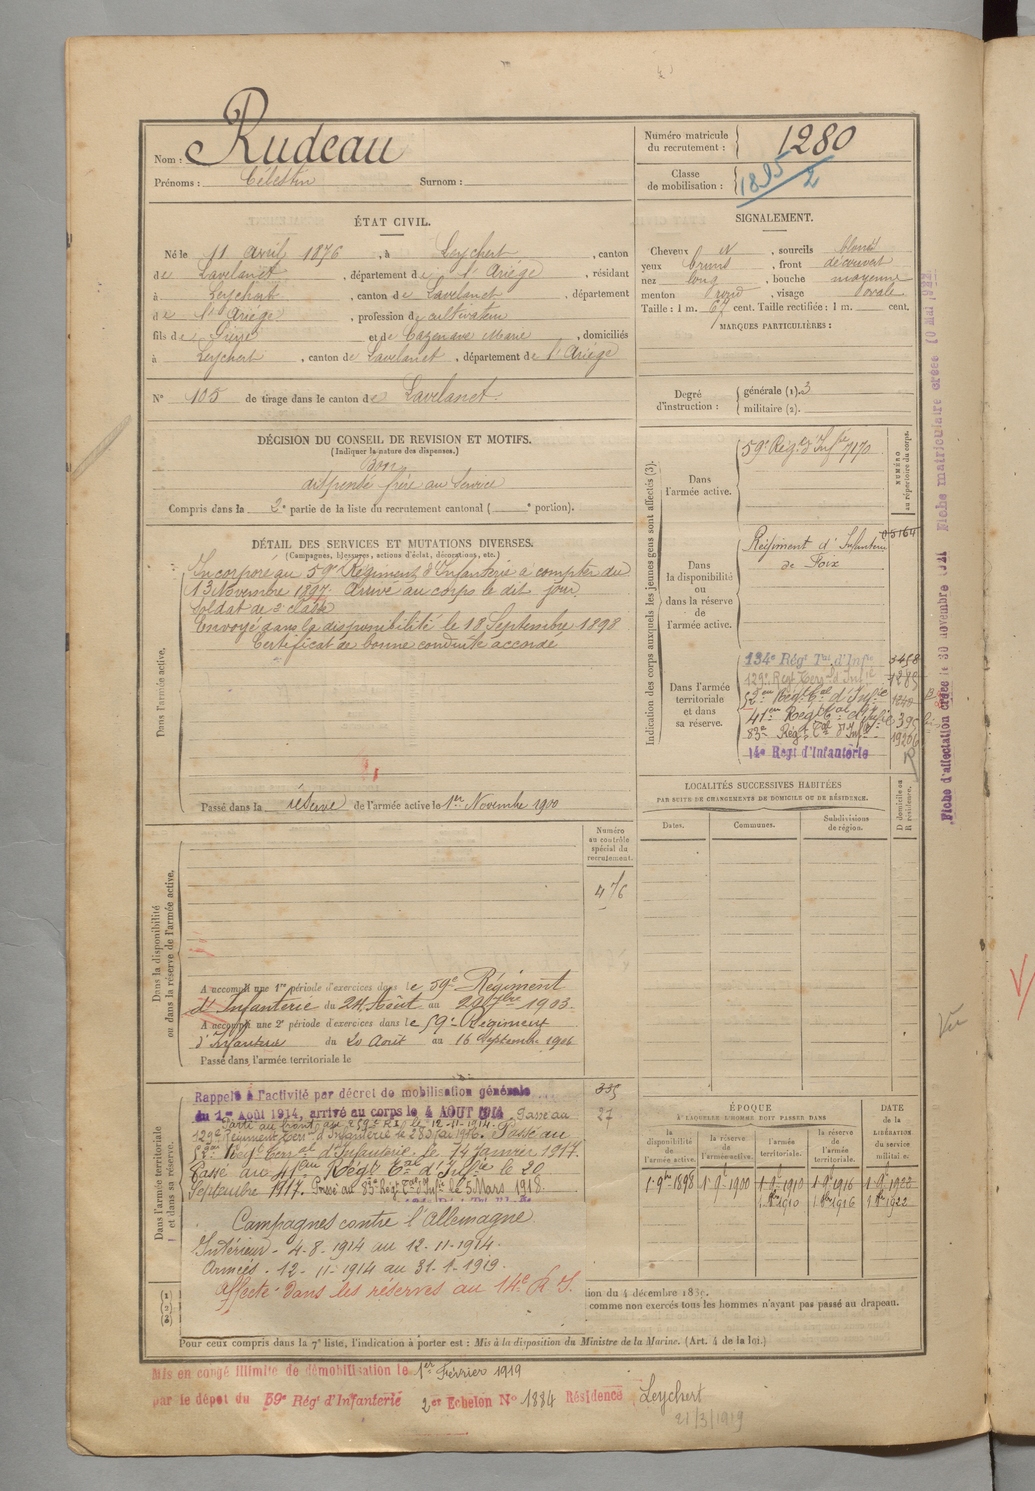 Nom : Rudeau
Prénoms : Célestin Surnom :
Numéro matricule du recrutement : 1280
Classe de mobilisation : 1895/2
ÉTAT CIVIL.
Né le 11 avril 1876, à Leychert, canton
de Lavelanet, département de l'Ariège, résidant
à Leychert, canton de Lavelanet, département
de l'Ariège, profession de cultivateur
fils de Pierre et de Cazenave Marie, domiciliés
à Leychert, canton de Lavelanet, département de l'Ariège
N° 105 de tirage dans le canton de Lavelanet.
SIGNALEMENT.
Cheveux et, sourcils blonds
yeux bruns, front découvert
nez long, bouche moyenne
menton rond, visage ovale
Taille : 1 m. 67 cent. Taille rectifiée : 1 m. cent.
MARQUES PARTICULIÈRES :
Degré d'instruction : générale (1). 3
militaire (2).
DÉCISION DU CONSEIL DE REVISION ET MOTIFS.
(Indiquer la nature des dispenses.)
Bon
dispensé frère au service
Compris dans la 2e partie de la liste du recrutement cantonal ( e portion).
DÉTAIL DES SERVICES ET MUTATIONS DIVERSES.
(Campagnes, blessures, actions d'éclat, décorations, etc.)
Dans l'armée active.
Incorporé au 59e Régiment d'Infanterie à compter du
13 Novembre 1897. Arrivé au corps le dit jour.
Soldat de 2e classe
Envoyé dans la disponibilité le 18 Septembre 1898
Certificat de bonne conduite accordé
Passé dans la réserve de l'armée active le 1er Novembre 1900
Indication des corps auxquels les jeunes gens sont affectés (3).
NUMÉRO au répertoire du corps.
Dans l'armée active.
59e Régt d'Infie 7170
Dans la disponibilité ou dans la réserve de l'armée active.
Régiment d'Infanterie
de Foix
Dans l'armée territoriale et dans sa réserve.
134e Régt Tal d'Infie
129e Regt Terral d'Infie
52eme Régt Tal d'Infie
41eme Régt Tal d'Infie
83e Régt Tal d'Infie
14e Regt d'Infanterie
LOCALITÉS SUCCESSIVES HABITÉES
PAR SUITE DE CHANGEMENTS DE DOMICILE OU DE RÉSIDENCE.
Dates. Communes. Subdivisions de région.
D domicile ou R résidence.
Dans la disponibilité ou dans la réserve de l'armée active.
Numéro au contrôle spécial du recrutement.
476
A accompli une 1re période d'exercices dans le 59e Régiment
d'Infanterie du 24 Août au 20 7bre 1903.
A accompli une 2e période d'exercices dans le 59e Régiment
d'Infanterie du 20 Août au 16 Septembre 1906
Passé dans l'armée territoriale le
Dans l'armée territoriale et dans sa réserve.
Rappelé à l'activité par décret de mobilisation générale
du 1er Août 1914, arrivé au corps le 4 AOUT 1914. Passé au
Parti au front le 12-11-1914.
129e Régiment Terral d'Infanterie le 1916. Passé au
52eme Régt Terral d'Infanterie le 14 Janvier 1917.
Passé au 41eme Régt Tal d'Infie le 20
Septembre 1917. Passé au 83e Régt Tal d'Infie le 5 Mars 1918.
Campagnes contre l'Allemagne
Intérieur - 4-8-1914 au 12-11-1914.
Armées - 12-11-1914 au 31-1-1919.
Affecté dans les réserves au 14e R I.
335
27
ÉPOQUE
A LAQUELLE L'HOMME DOIT PASSER DANS
la disponibilité de l'armée active. la réserve de l'armée active. l'armée territoriale. la réserve de l'armée territoriale.
DATE de la LIBÉRATION du service militaire.
1 9bre 1898 1 9bre 1900 1 9bre 1910 1 9bre 1916 1 9bre 1922
1 8bre 1910 1 8bre 1916 1 8bre 1922
comme non exercés tous les hommes n'ayant pas passé au drapeau.
Pour ceux compris dans la 7e liste, l'indication à porter est : Mis à la disposition du Ministre de la Marine. (Art. 4 de la loi.)
Mis en congé illimité de démobilisation le 1er Février 1919
par le dépot du 59e Régt d'Infanterie 2er Echelon N° 1834 Résidence Leychert
21/3/1919
Fiche d'affectation créée le 30 novembre 1921 Fiche matriculaire créée 10 Mai 1922
Vu